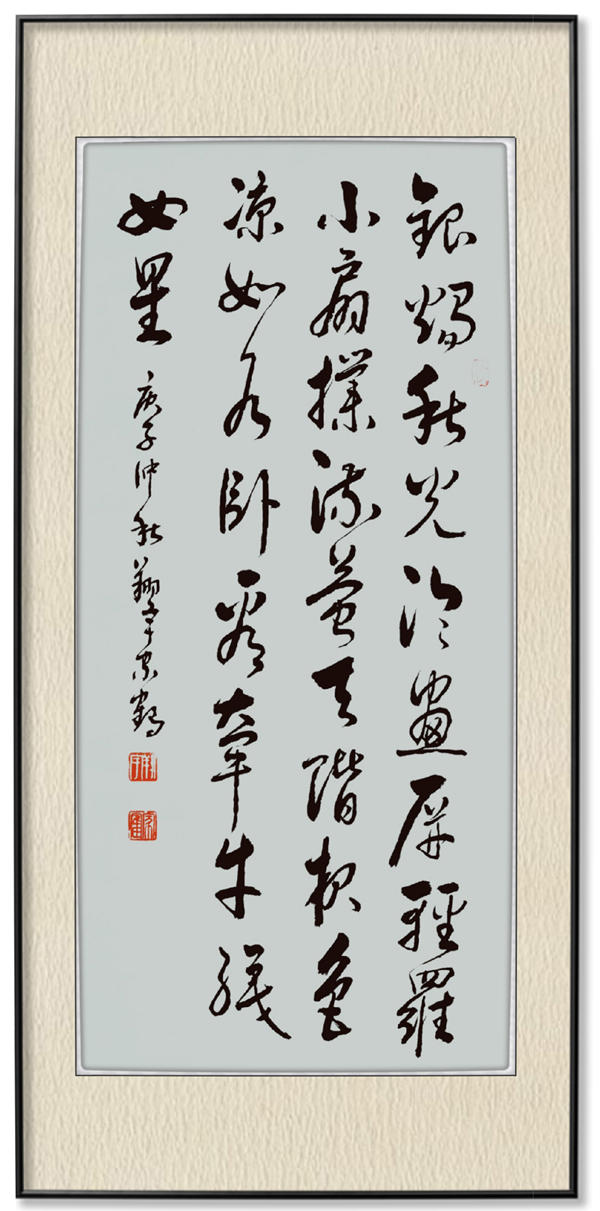 銀燭秋光冷畫屏輕羅
小扇撲流螢天階夜色
涼如水臥看牽牛織
女星
庚子仲秋